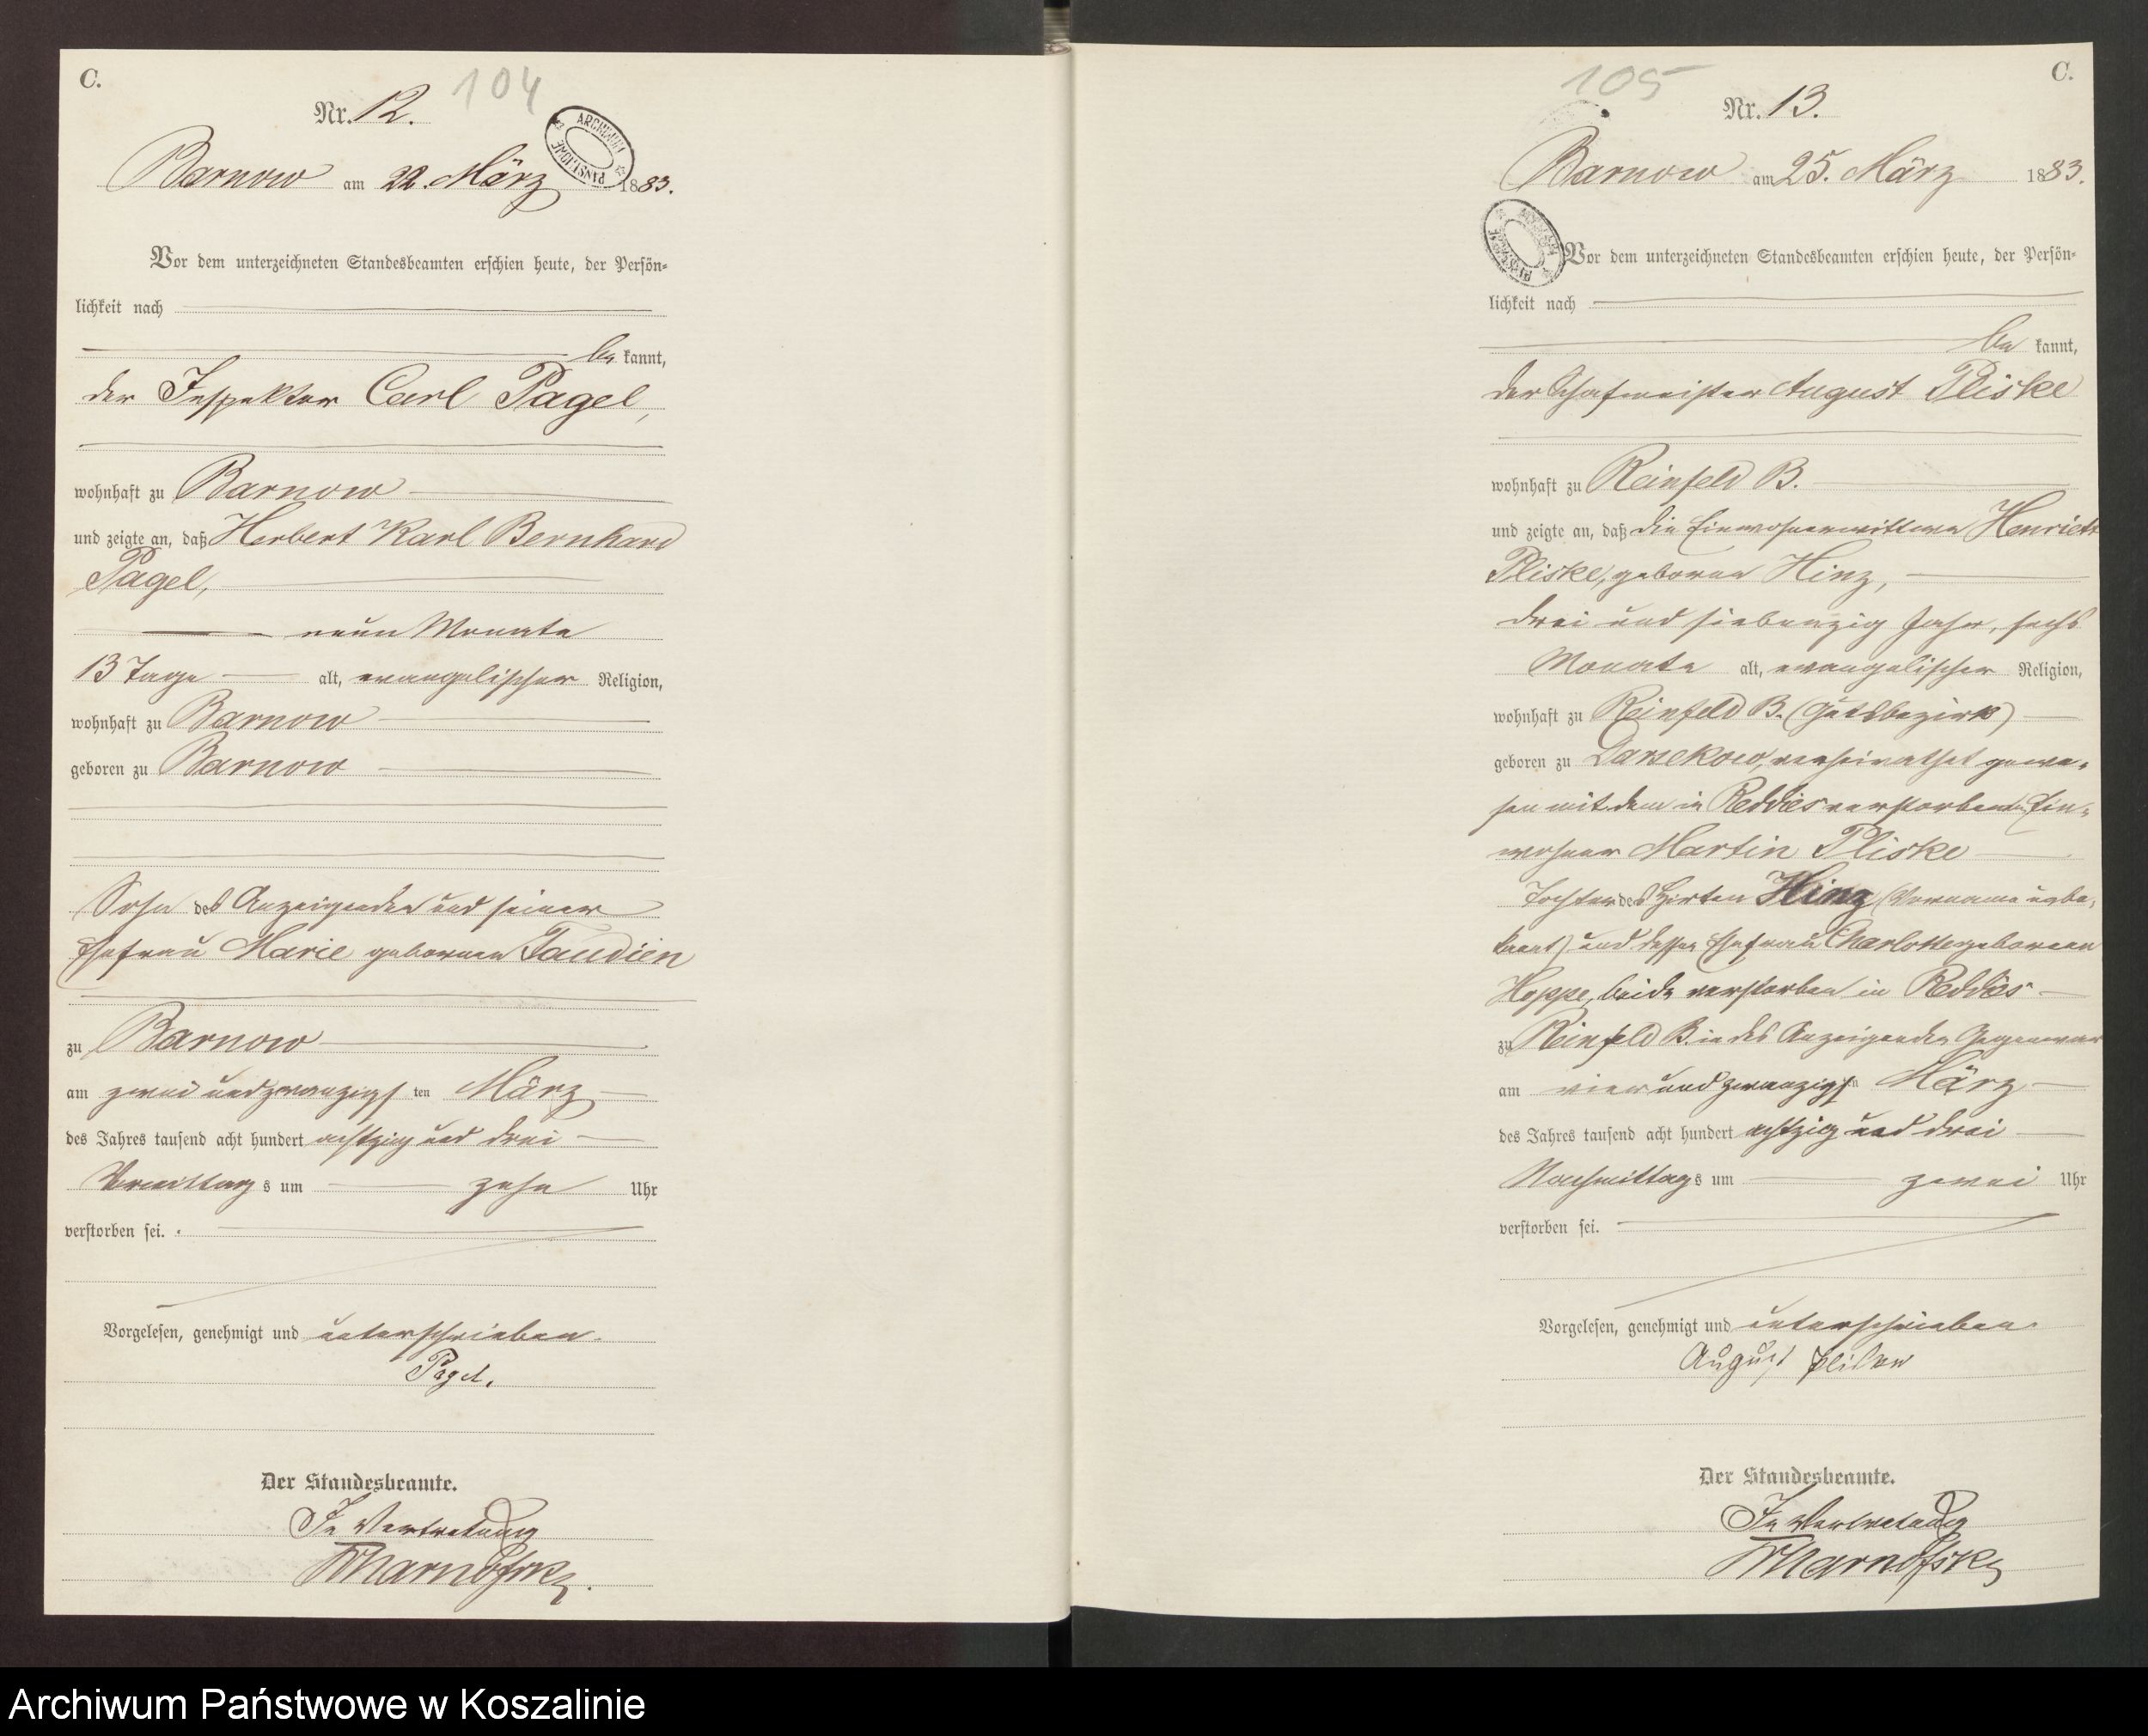 C.
104
Nr. 12.
ARCHIWUM PAŃSTWOWE
Barnow am 22. März 1883.
Vor dem unterzeichneten Standesbeamten erschien heute, der Persön-
lichkeit nach
be kannt,
der Inspektor Carl Pagel,
wohnhaft zu Barnow
und zeigte an, daß Herbert Karl Bernhard
Pagel,
neun Monate
13 Tage alt, evangelischer Religion,
wohnhaft zu Barnow
geboren zu Barnow
Sohn des Anzeigenden und seiner
Ehefrau Marie geborenen Taudien
zu Barnow
am zwei und zwanzigs ten März
des Jahres tausend acht hundert achtzig und drei
Vormittag s um zehn Uhr
verstorben sei.
Vorgelesen, genehmigt und unterschrieben.
Pagel.
Der Standesbeamte.
In Vertretung
C.
105
Nr. 13.
Barnow am 25. März 1883.
Vor dem unterzeichneten Standesbeamten erschien heute, der Persön-
lichkeit nach
be kannt,
der Schafmeister August Pliske
wohnhaft zu Reinfeld B.
und zeigte an, daß die Einwohnerwittwe Henriette
Pliske, geborne Hinz,
drei und siebenzig Jahr, sechs
Monate alt, evangelischer Religion,
wohnhaft zu Reinfeld B. (Gutsbezirk)
geboren zu Darsekow, verheirathet gewe-
sen mit dem in Reddies verstorbenen Ein-
wohner Martin Pliske
Tochter des Hirten Hinz (Vorname unbe-
kannt) und dessen Ehefrau Charlotte geborenen
Hoppe, beide verstorben in Reddies
zu Reinfeld B. in des Anzeigenden Gegenwart
am vier und zwanzigsten März
des Jahres tausend acht hundert achtzig und drei
Nachmittag s um zwei Uhr
verstorben sei.
Vorgelesen, genehmigt und unterschrieben
August Plisken
Der Standesbeamte.
In Vertretung
Archiwum Państwowe w Koszalinie